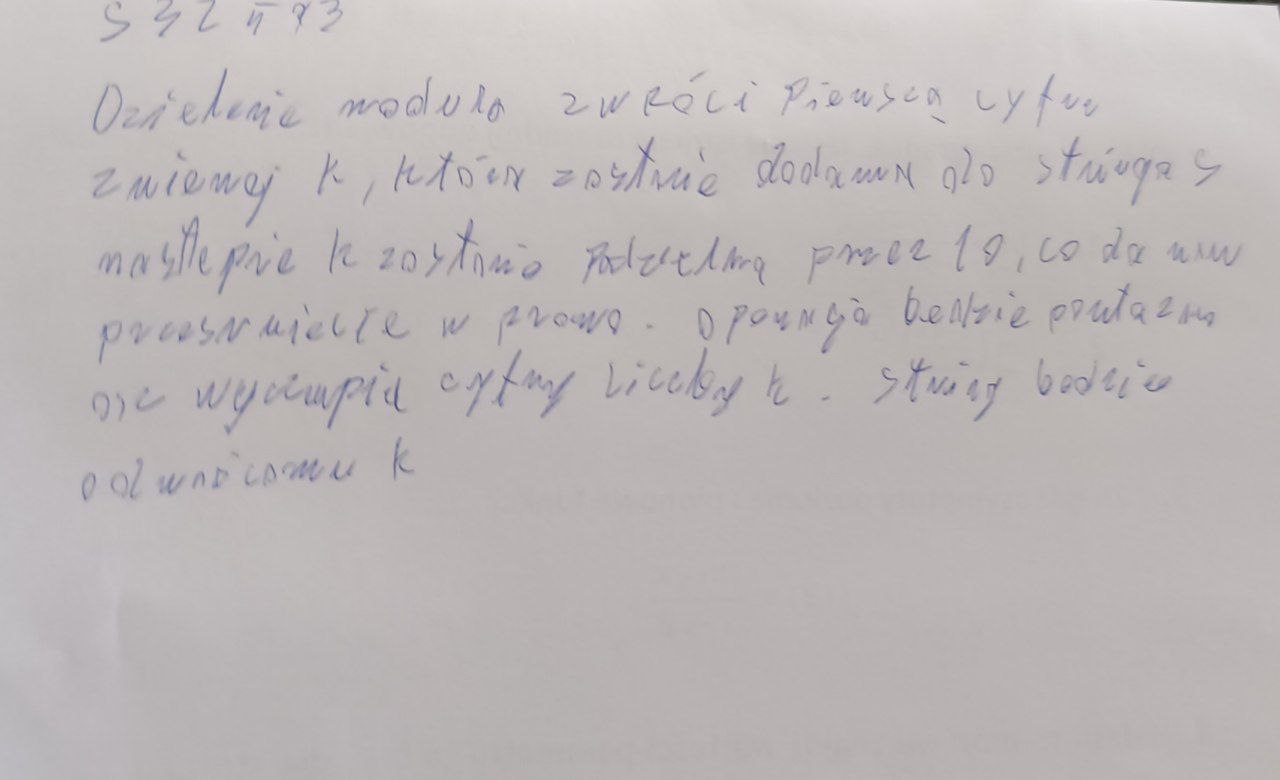 Dzielenie modulo zwróci pierwszą cyfrę
zmienej k, która zostnie dodana do stringa s
nastepnie k zostanie podzielna przez 10, co da nam
przesuniecie w prawo. operacja bedzie powtazana
wyczerpia cyfry liczby k. string bedzie
odwróconym k